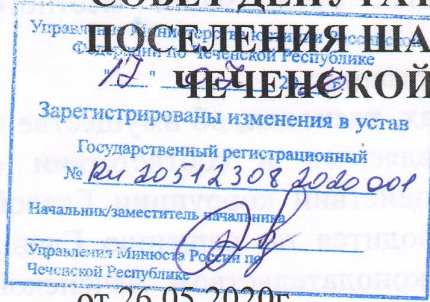 СОВЕТ ДЕПУТАТ
ПОСЕЛЕНИЯ ША
ЧЕЧЕНСКОЙ
Управление Министерства юстиции Российской
Федерации по Чеченской Республике
"17" 07 20
Зарегистрированы изменения в устав
Государственный регистрационный
№ RU 205123082020001
Начальник/заместитель начальника
Управления Минюста России по
Чеченской Республике
от 26.05.2020г